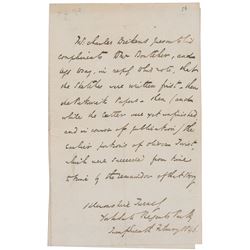 Mr Charles Dickens presents his
compliments to Mr Butcher, and
begs to say, in reply to his note, that
the Sketches were written first. then
the Pickwick Papers. then (and
while the latter were yet unfinished
and in course of publication) the
earlier portions of Oliver Twist
which were succeeded from time
to time by the remainder of the Story
Devonshire Terrace
York Gate Regents Park